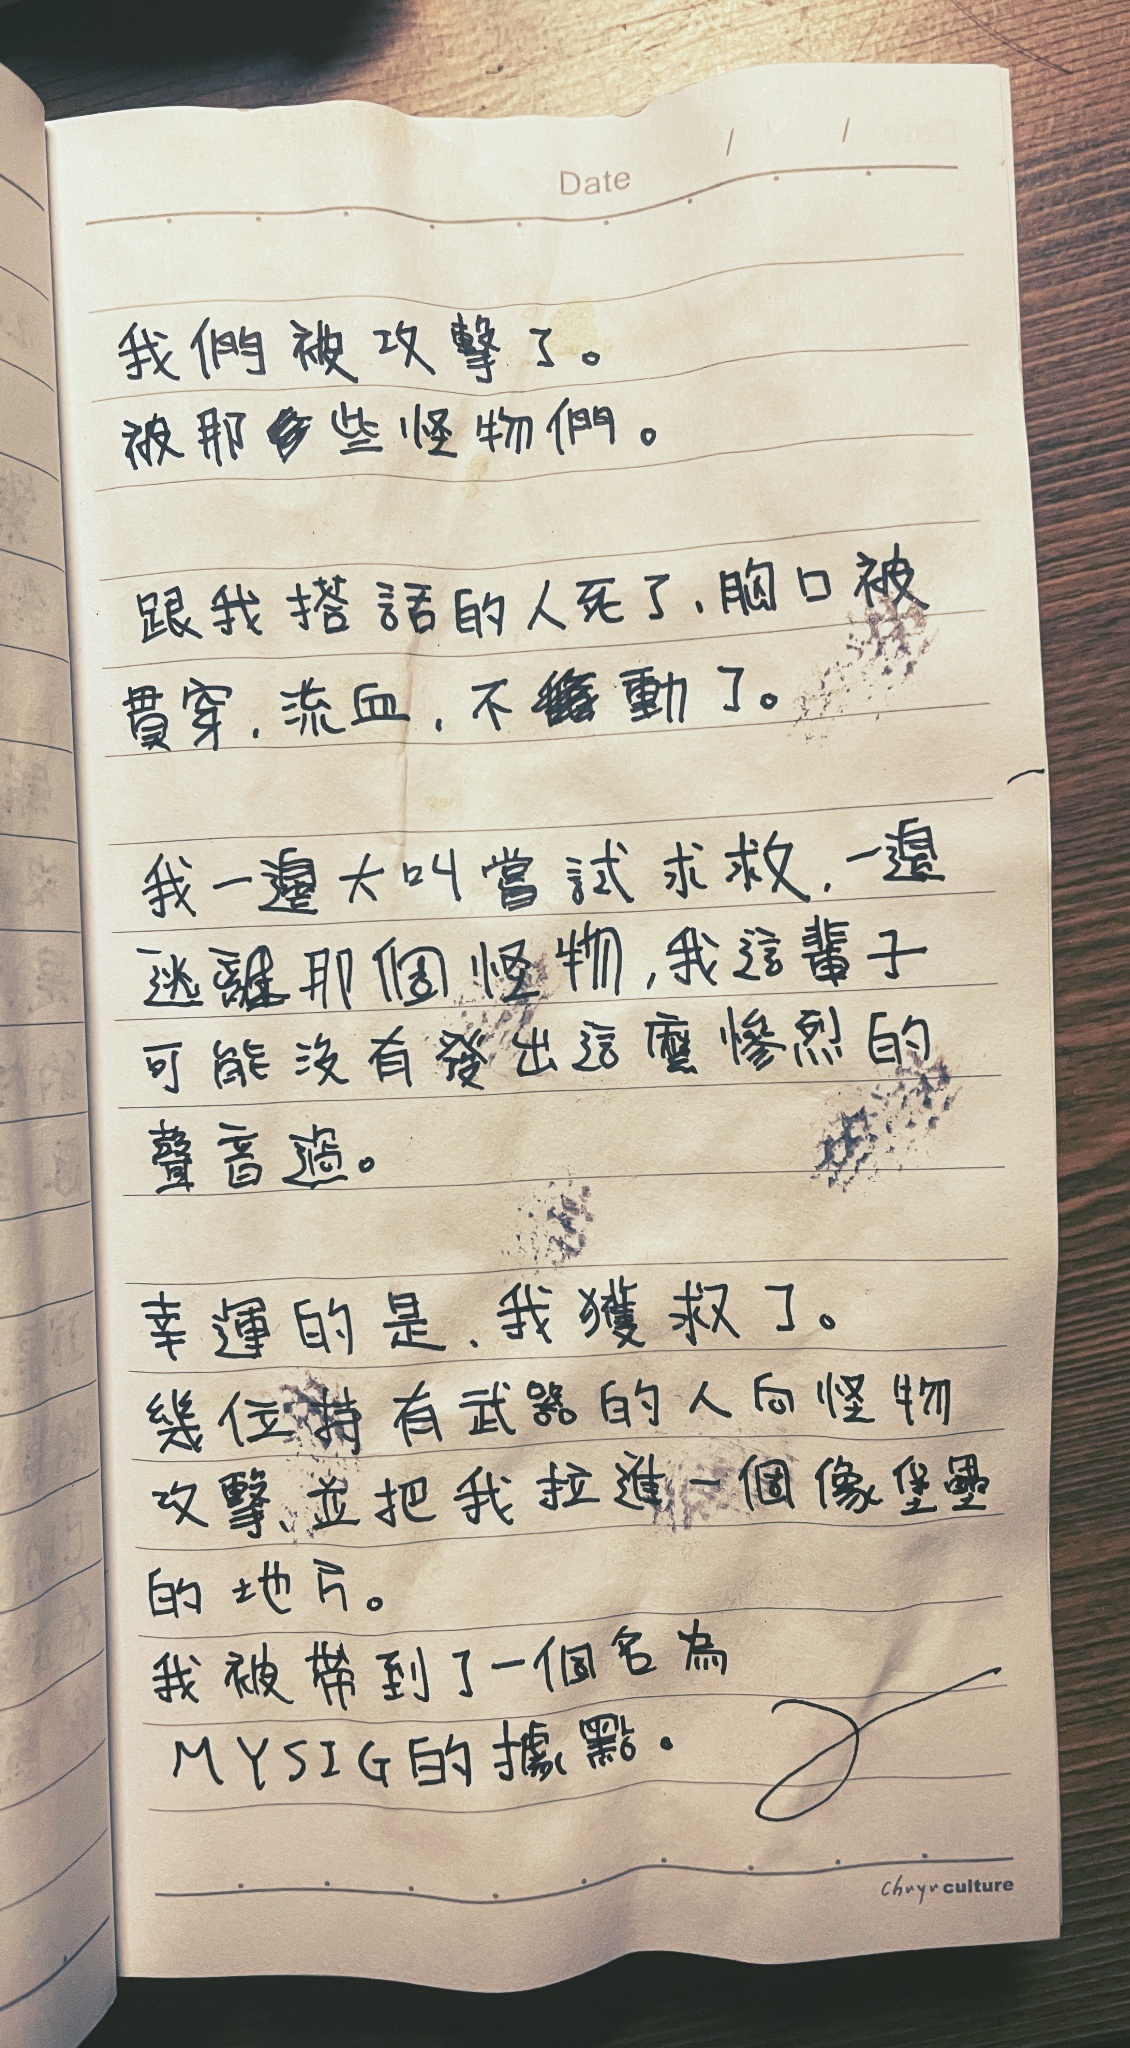 Date / /
我們被攻擊了。
被那些怪物們。
跟我搭話的人死了、胸口被
貫穿、流血、不動了。
我一邊大叫嘗試求救、一邊
逃離那個怪物,我這輩子
可能沒有發出這麼慘烈的
聲音過。
幸運的是、我獲救了。
幾位持有武器的人向怪物
攻擊、並把我拉進一個像堡壘
的地方。
我被帶到了一個名為
MYSIG的據點。
culture